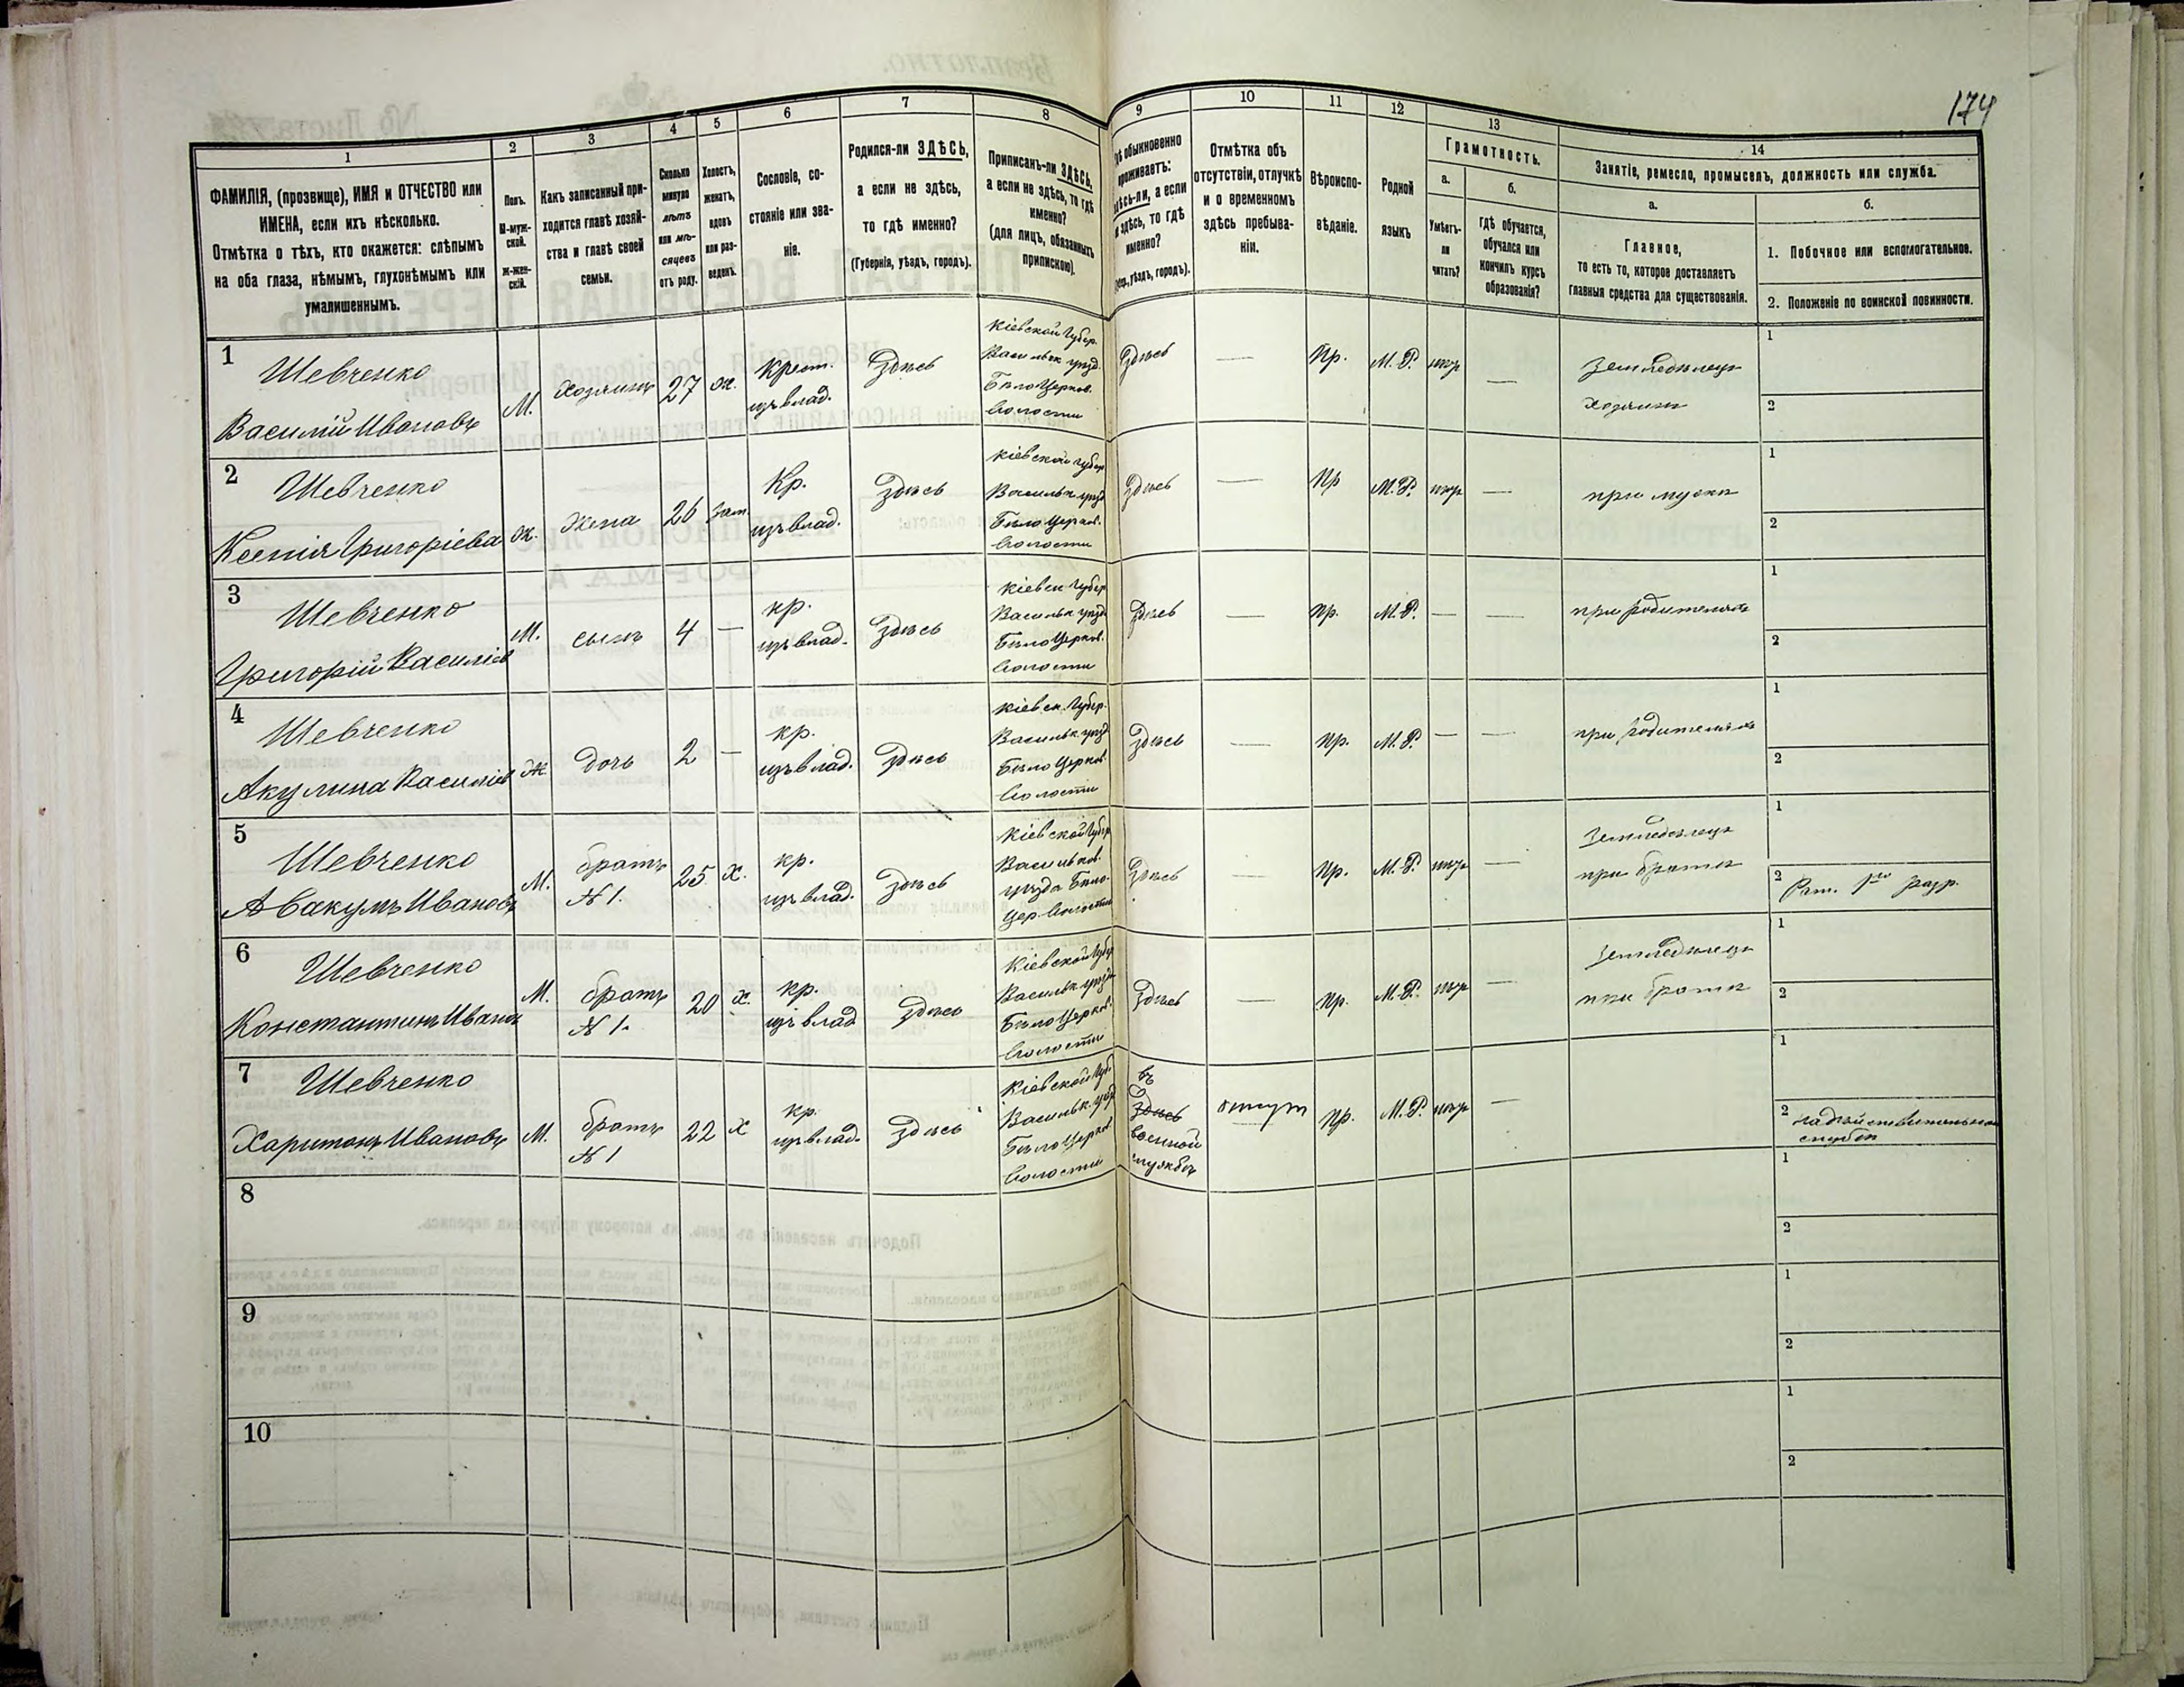 174
1 2 3 4 5 6 7 8 9 10 11 12 13 14
ФАМИЛІЯ, (прозвище), ИМЯ и ОТЧЕСТВО или
ИМЕНА, если ихъ нѣсколько.
Отмѣтка о тѣхъ, кто окажется: слѣпымъ
на оба глаза, нѣмымъ, глухонѣмымъ или
умалишеннымъ.
Полъ.
М-муж-
ской.
Ж-жен-
скій.
Какъ записанный при-
ходится главѣ хозяй-
ства и главѣ своей
семьи.
Сколько
минуло
лѣтъ
или мѣ-
сяцевъ
отъ роду.
Холостъ,
женатъ,
вдовъ
или раз-
веденъ.
Сословіе, со-
стояніе или зва-
ніе.
Родился-ли ЗДѢСЬ,
а если не здѣсь,
то гдѣ именно?
(Губернія, уѣздъ, городъ).
Приписанъ-ли ЗДѢСЬ,
а если не здѣсь, то гдѣ
именно?
(для лицъ, обязанныхъ
припискою).
обыкновенно
проживаетъ:
а если
здѣсь, то гдѣ
именно?
уѣздъ, городъ).
Отмѣтка объ
отсутствіи, отлучкѣ
и о временномъ
здѣсь пребыва-
ніи.
Вѣроиспо-
вѣданіе.
Родной
языкъ
Грамотность.
а.
Умѣетъ-
ли
читать?
б.
Гдѣ обучается,
обучался или
кончилъ курсъ
образованія?
Занятіе, ремесло, промыселъ, должность или служба.
а.
Главное,
то есть то, которое доставляетъ
главныя средства для существованія.
б.
1. Побочное или вспомогательное.
2. Положеніе по воинской повинности.
1
Шевченко
Василій Ивановъ
М.
Хозяинъ
27
ж.
Крест.
изъ влад.
Здѣсь
Кіевской Губер.
Васильк уѣзд.
Бѣлоцерков.
Волости
Здѣсь
—
Пр.
М. Р.
—
Земледѣлецъ
Хозяинъ
1
2
2
Шевченко
Ксенія Григоріева
ж.
Жена
26
зам.
Кр.
изъ влад.
Здѣсь
Кіевской Губер
Васильк уѣзд
Бѣлоцерков.
Волости
Здѣсь
—
Пр
М. Р.
—
при мужѣ
1
2
3
Шевченко
Григорій Василіев
М.
сынъ
4
—
кр.
изъ влад.
Здѣсь
Кіевск Губер
Васильк уѣзд
Бѣлоцерков.
Волости
Здѣсь
—
Пр.
М. Р.
—
—
при родителяхъ
1
2
4
Шевченко
Акулина Василіев
Ж
дочь
2
—
кр.
изъ влад.
Здѣсь
Кіевск. Губер.
Васильк уѣзд
Бѣлоцерков.
Волости
Здѣсь
—
Пр.
М. Р.
—
—
при родителяхъ
1
2
5
Шевченко
Авакумъ Ивановъ
М.
братъ
N 1.
25
Х.
кр.
изъ влад.
Здѣсь
Кіевской Губер
Васильков.
уѣзда Бѣло-
цер. Волости
Здѣсь
—
Пр.
М. Р.
—
Земледѣлецъ
при братѣ
1
2
Рат. 1го разр.
6
Шевченко
Константинъ Иванов
М.
братъ
N 1.
20
х.
кр.
изъ влад
Здѣсь
Кіевской Губ
Васильк уѣзда
Бѣлоцерков.
Волости
Здѣсь
—
Пр.
М. Р.
—
Земледѣлецъ
при братѣ
1
2
7
Шевченко
Харитонъ Ивановъ
М.
братъ
N 1
22
х
кр.
изъ влад.
Здѣсь
Кіевской Губ
Васильк. уѣзд
Бѣлоцерков
Волости
въ
Здѣсь
военной
службѣ
отсут
Пр.
М. Р.
—
1
2
на дѣйствительной
службѣ
8
1
2
9
1
2
10
1
2